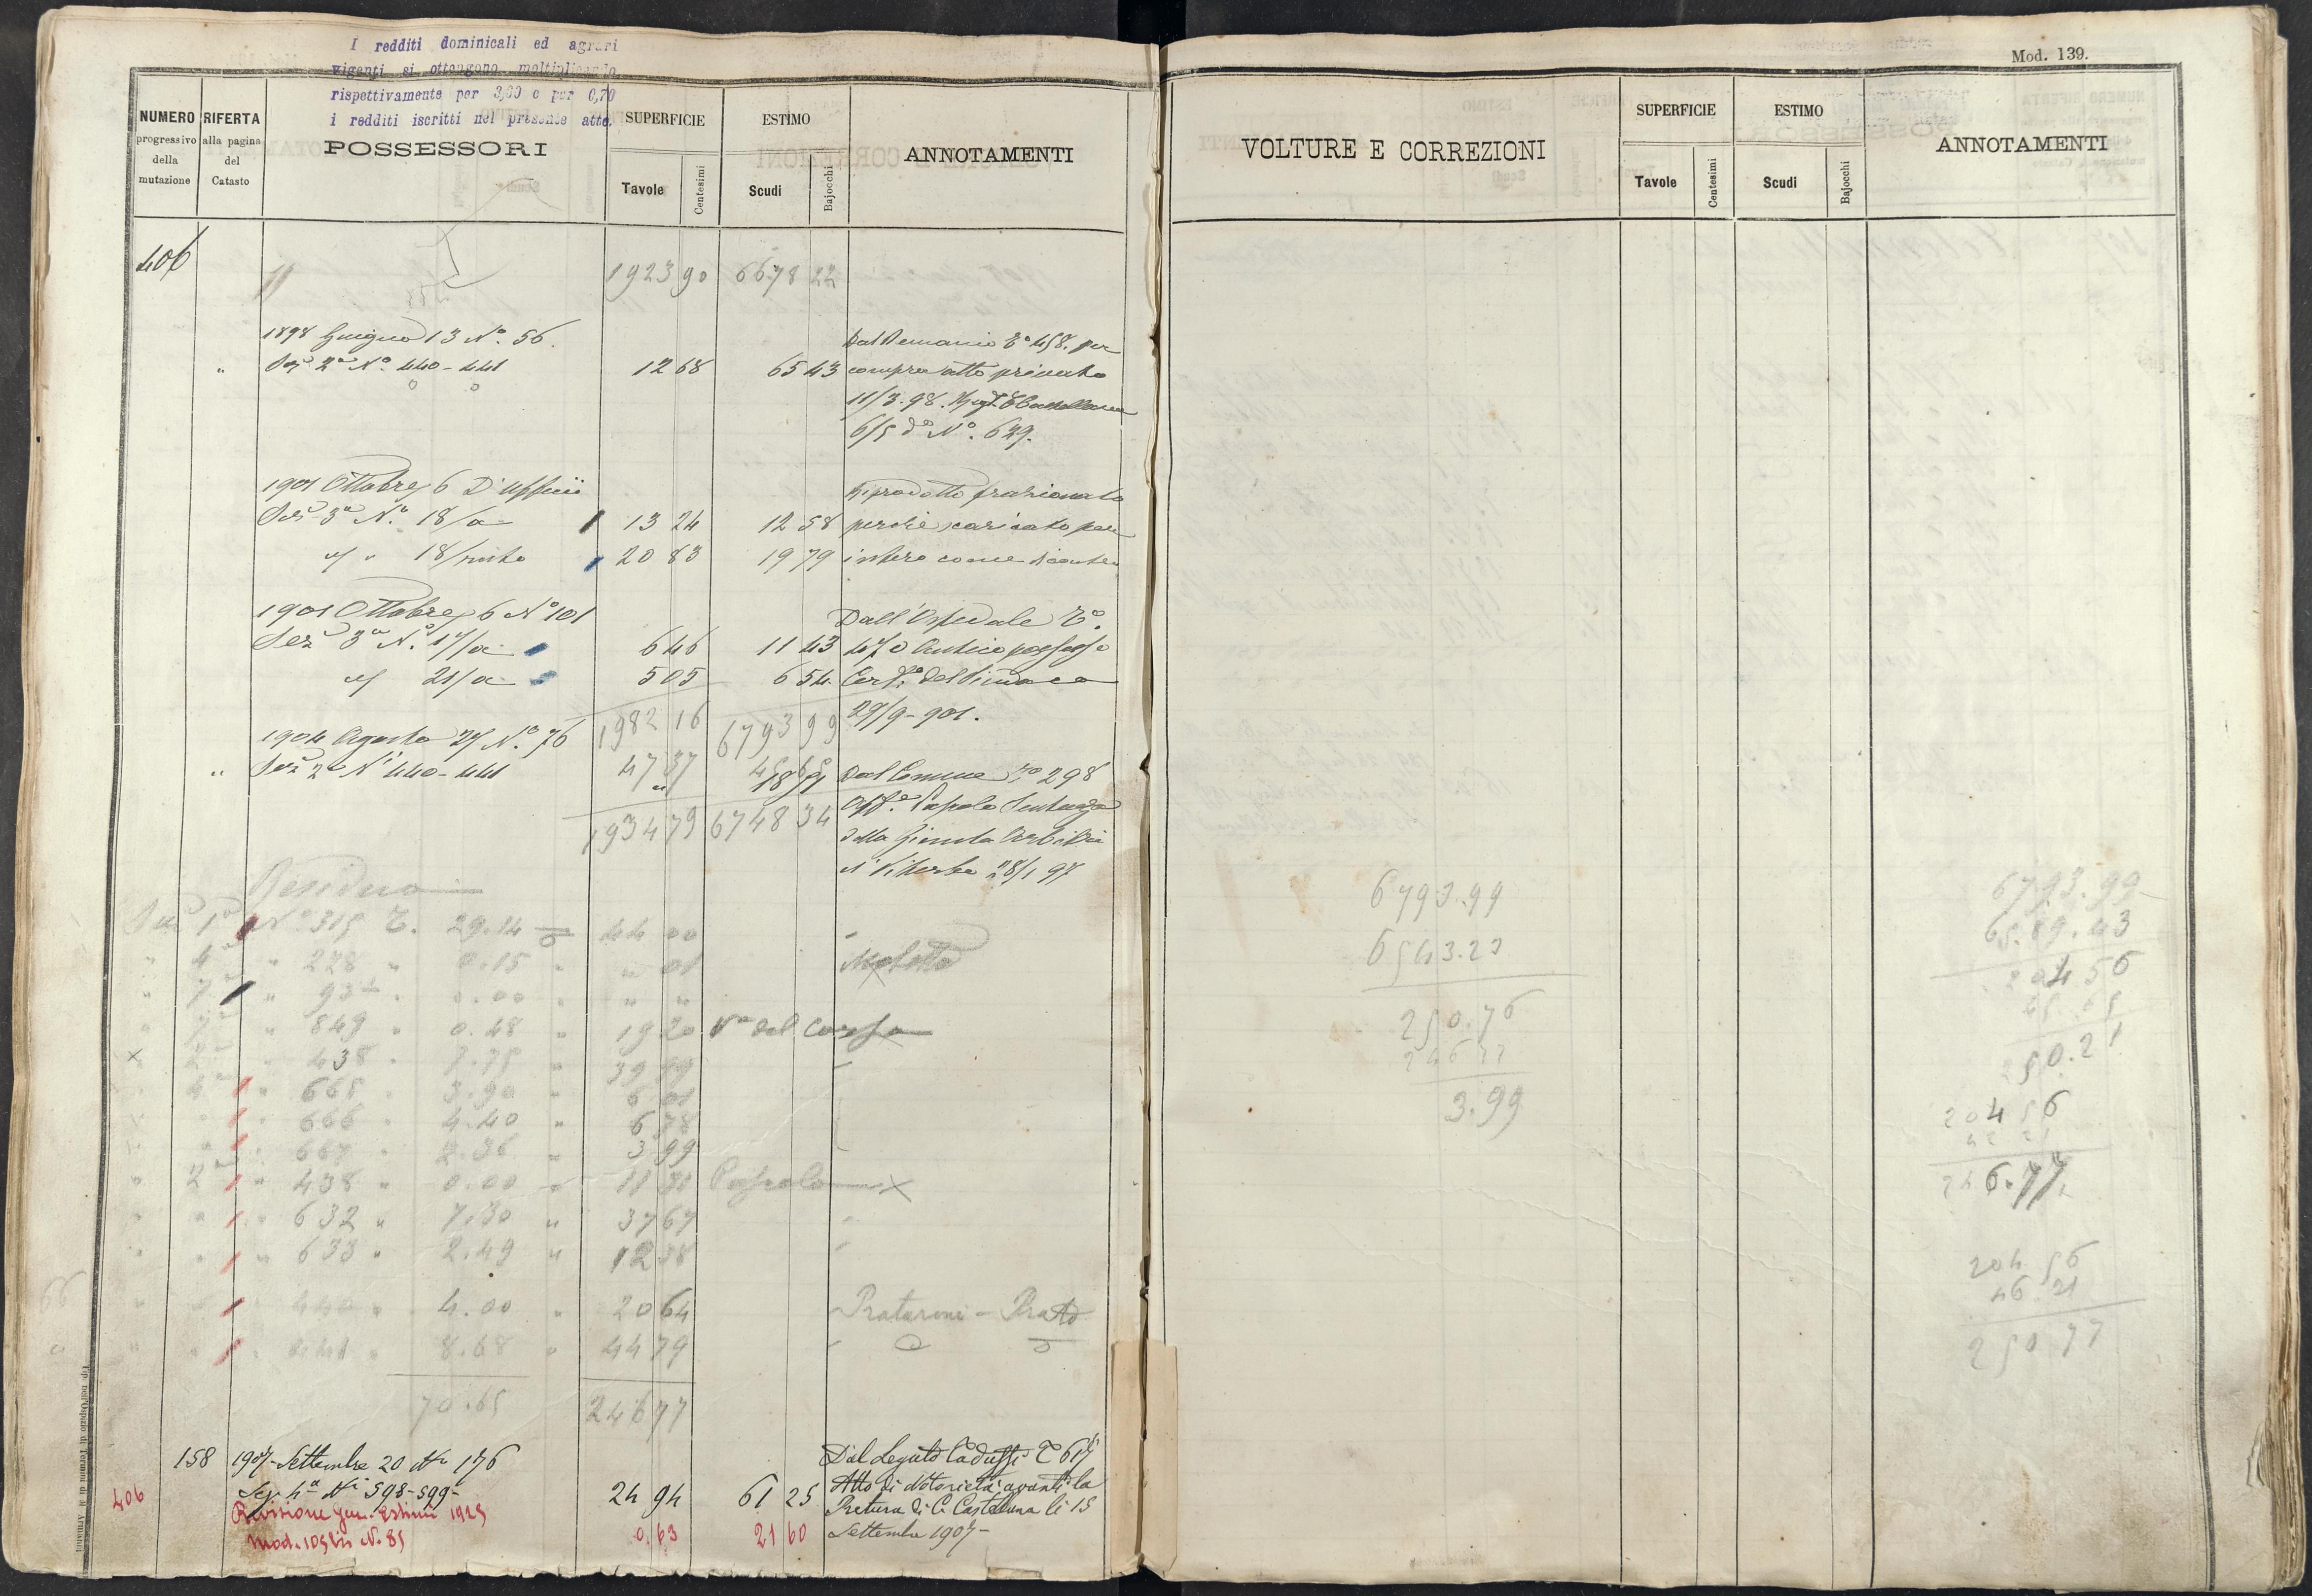 I redditi dominicali ed agrari
vigenti si ottengono moltiplicando
rispettivamente per 3,60 e per 0,70
i redditi iscritti nel presente atto.
NUMERO progressivo della mutazione
RIFERTA alla pagina del Catasto
POSSESSORI
SUPERFICIE
Tavole Centesimi
ESTIMO
Scudi Bajocchi
ANNOTAMENTI
406 1923 90 6678 22
1898 Giugno 13 N° 56. Dal Demanio T° 458. per
" Sez 2a N° 440-441 12 68 65 43 compra atto privato
11/3.98. Regt.
6/5 do N°. 629.
1901 Ottobre 6 D'Ufficio Riprodotto frazionato
Sez 3a N. 18/a 13 24 12 58 perchè scaricato per
" " 18/resto 20 83 19 79 intero come
1901 Ottobre 6 N° 101 Dall'Ospedale T°.
Sez 3a N. 17/a 6 46 11 43 470 Antico possesso
" 21/a 5 05 6 54 Cert° del Sindaco
1982 16 6793 99 29/9-901.
1904 Agosto 27 N° 76
" Sez 2a N° 440-441 47 37 Dal Comune T° 298
1934 79 6748 34 Aff.e Pascolo Sentenza
della Giunta Arbitri
di Viterbo 28/1 97
Residuo
Sez 1a N° 315 T. 29.14 44 00
" 4a " 228 " 0.15 " " 01
" 7a " 93 " 0.00 " " "
" 7a " 849 " 0.48 " 19 20 Va del Corso
x " 438 " 7.75 " 39 99
" 4a " 665 " 3.90 " 6 01
" " 666 " 4.40 " 6 78
" " 667 " 2.36 " 3 99
" 2a " 438 " 0.00 " 11 31 Pascolo x
" " " 632 " 7.30 " 37 67 "
" " " 633 " 2.49 " 12 38 "
66 " " 440 " 4.00 " 20 64 Prataroni - Prato
" " " 441 " 8.68 " 44 79
70.65 246 77
158 1907 Settembre 20 N° 176 Dal Legato Caduffi T° 617
Sez 4a N° 598-599 24 94 61 25 Atto di Notorietà avanti la
Pretura di C. Castellana li 15
Settembre 1907-
406 Revisione gen. Estimi 1925
Mod. 105 bis N. 85 0.63 21 60
Mod. 139.
VOLTURE E CORREZIONI
SUPERFICIE
Tavole Centesimi
ESTIMO
Scudi Bajocchi
ANNOTAMENTI
6793.99
6543.23
250.76
246 77
3.99
6793.99
6589.43
204 56
50.21
204 56
42 21
246.77
204 56
46 21
250 77